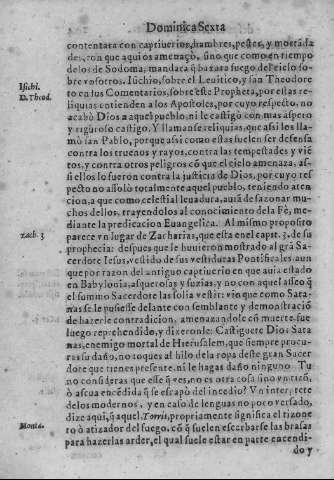 Dominica Sexta
contentara con captiuerios, hambres, pestes, y mortãda
des, con que aqui os amenaçò, sino que como en tiempo
de los de Sodoma, mandara q̃ baxara fuego del cielo so-
bre vosotros. Isichio, sobre el Leuitico, y san Theodore
Isichi.
D. Theod.
to en los Comentarios, sobre este Propheta, por estas re-
liquias entienden a los Apostoles, por cuyo respecto, no
acabò Dios a aquel pueblo, ni le castigò con mas aspero
y riguroso castigo. Y llamanse reliquias, que assi les lla-
mò san Pablo, porque assi como estas suelen ser defensa
contra los truenos y rayos, contra las tempestades y viẽ-
tos, y contra otros peligros cõ que el cielo amenaza; as-
si ellos lo fueron contra la justicia de Dios, por cuyo res
pecto no assolò totalmente aquel pueblo, teniendo aten
cion, a que como celestial leuadura, auiã de sazonar mu-
chos dellos, trayendolos al conocimiento dela Fè, me-
diante la predicacion Euangelica. Al mismo proposito
parece vn lugar de Zacharias, que esta en el capit. 3. de su
Zach. 3
prophecia: despues que le huuieron mostrado al grã Sa-
cerdote Iesus, vestido de sus vestiduras Pontificales, aun
que por razon del antiguo captiuerio en que auia estado
en Babylonia, asquerolas y suzias, y no con aquel asseo q̃
el summo Sacerdote las solia vestir: viò que como Sata-
nas se le pusiesse delante con semblante y demonstraciõ
de hazerle contradicion, amenazandole cõ muerte, fue
luego reprehendido, y dizeronle: Castiguete Dios Sata
nas, enemigo mortal de Hierusalem, que siempre procu-
ras su daño, no toques al hilo dela ropa deste gran Sacer
dote que tienes presente, ni le hagas daño ninguno. Tu
no consideras que esse q̃ ves, no es otra cosa sino vn tizõ,
ò ascua encẽdida q̃ se escapò del incẽdio? Vn interprete
delos modernos, y en caso de lenguas no poco versado,
dize aqui, q̃ aquel, Torris, propriamente significa el tizone
ro ò atizador del fuego, cõ q̃ suelen escarbarse las brasas
Monta.
para hazerlas arder, el qual suele estar en parte encendi-
do y